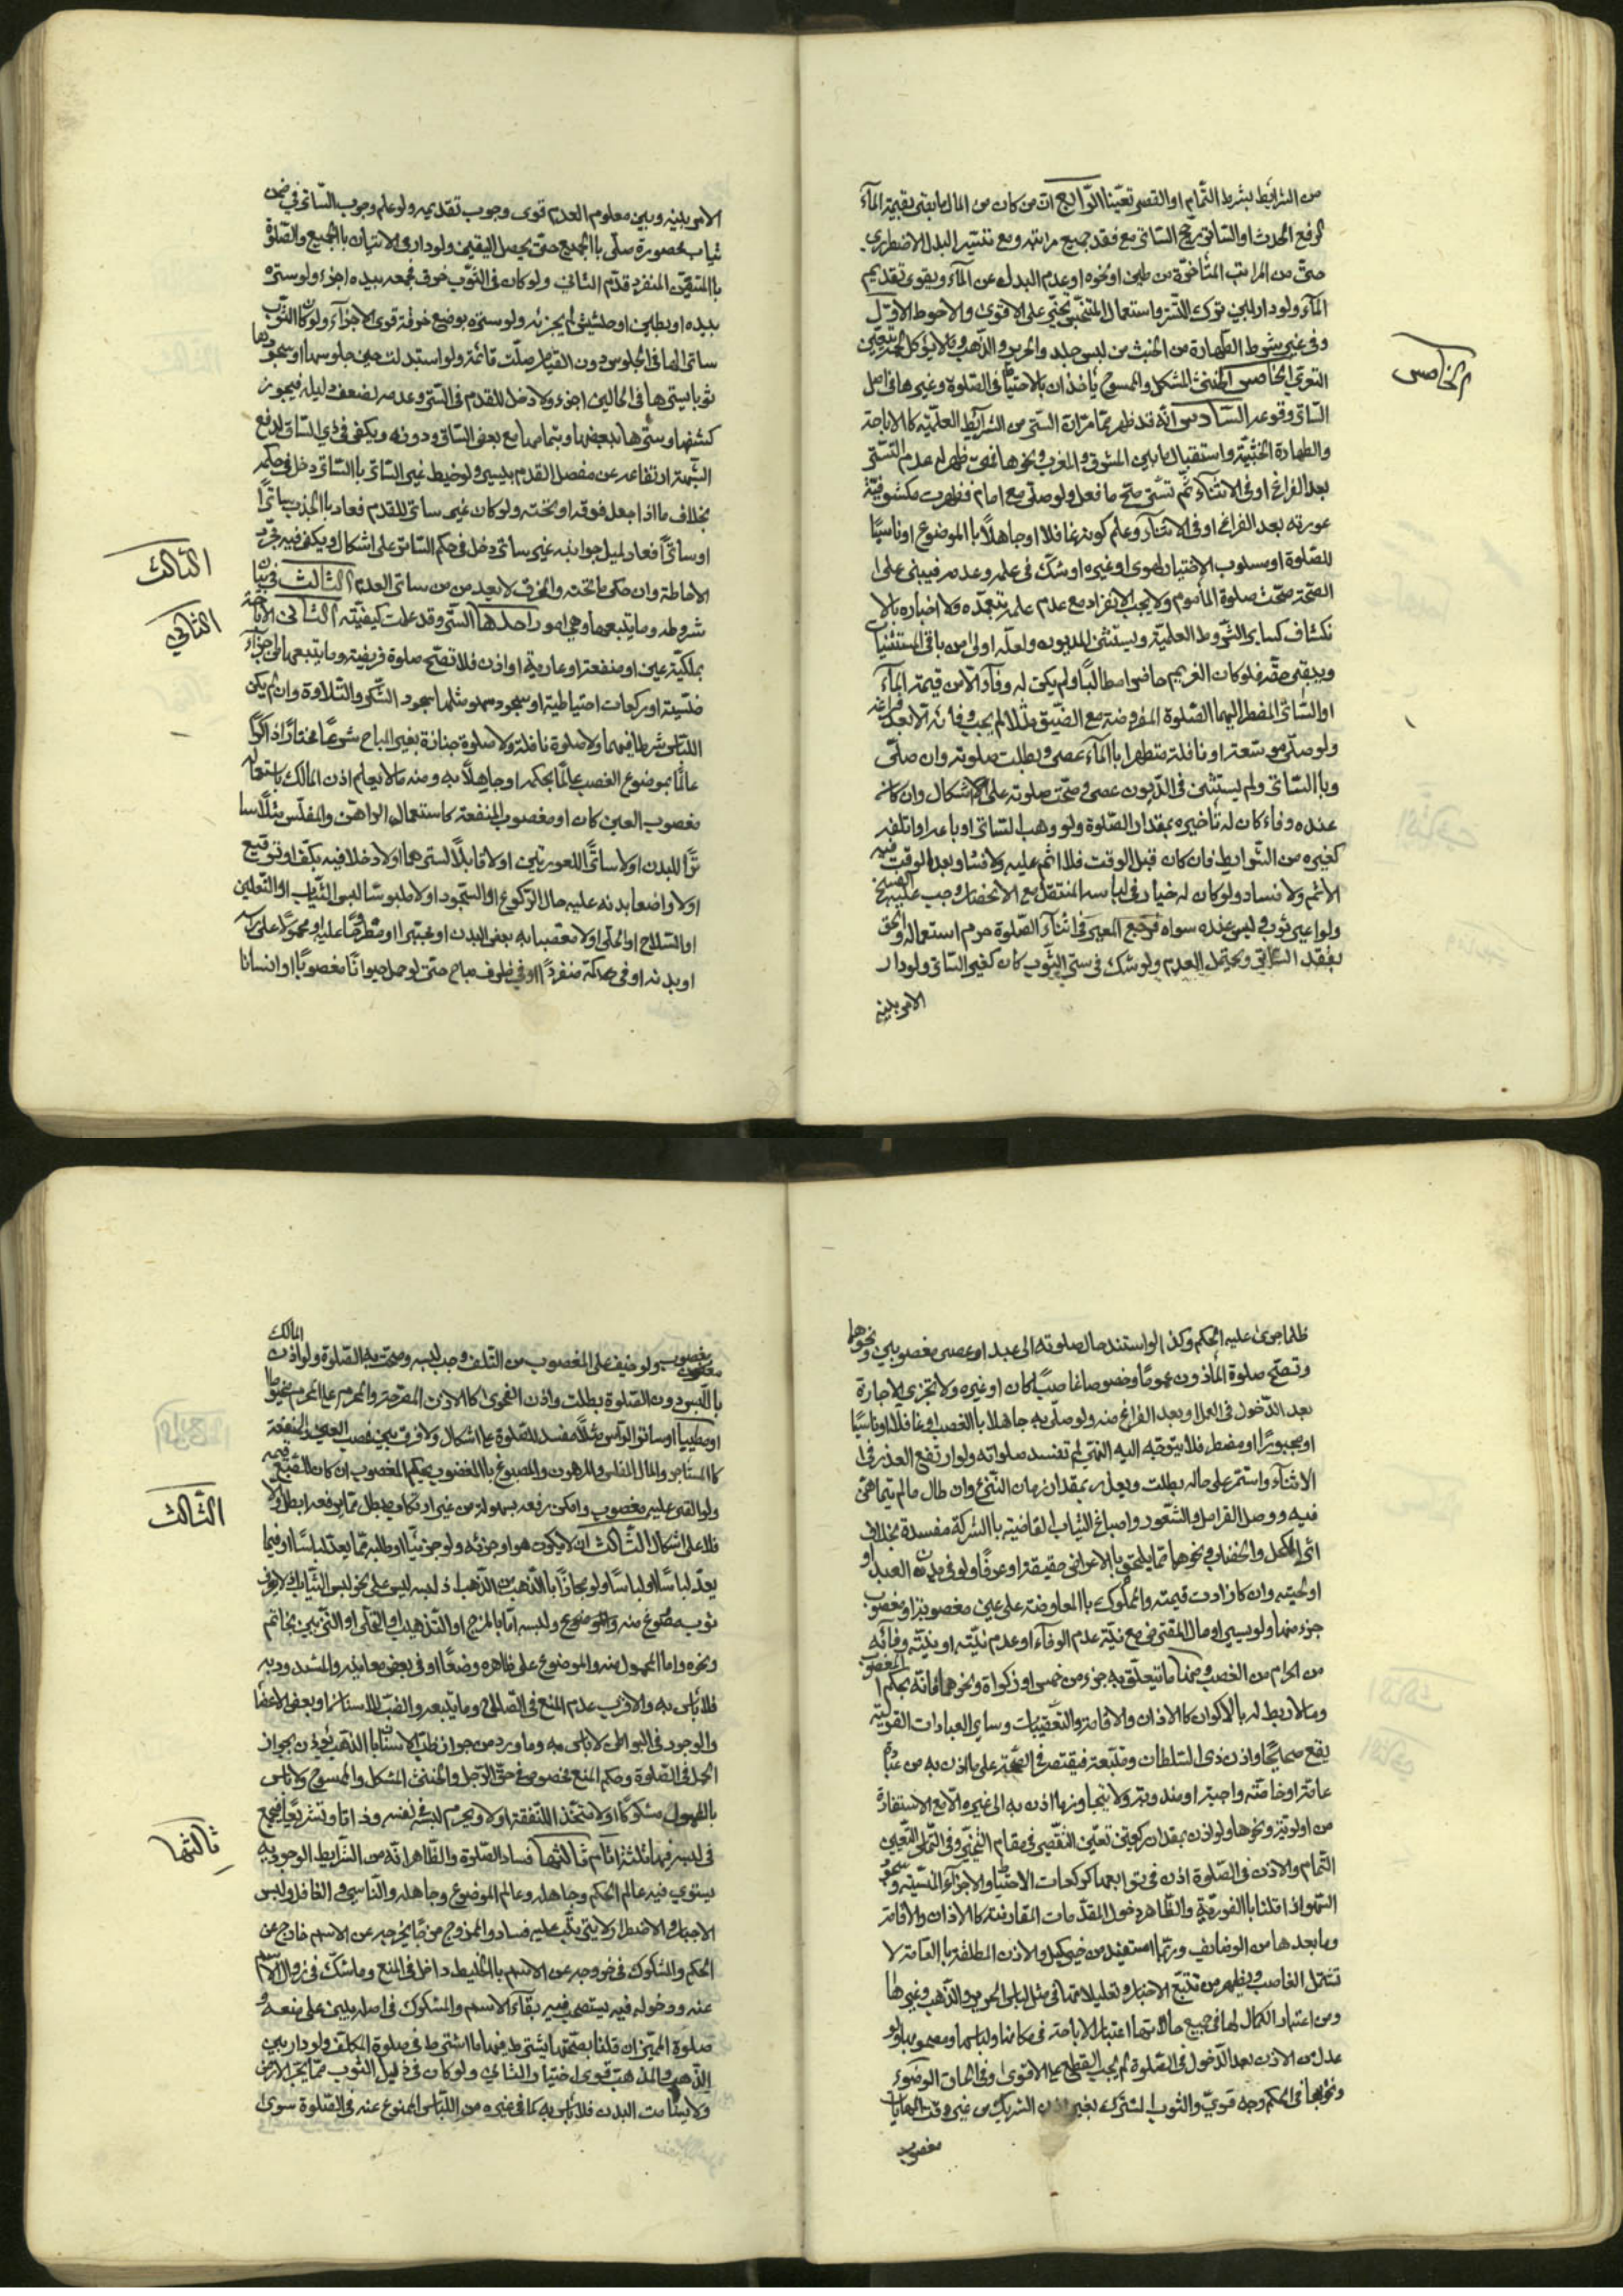 من الشرايط بشرط التمام او القصر تعيّنا الرّابع انّ من كان من المال ما يفى بقيمة المآء
لرفع الحدث او الساتر يرجّح الساتر مع فقد جميع مراتبه ومع تيسّر البدل الاضطرارى
حتّى من المراتب المتأخرة من طين او نحوه او عدم البدل عن المآء ويقوى تقديم
المآء ولو دار بين ترك التستر واستعمال المتنجّس تخيّر على الاقوى والاحوط الاوّل
وفى غير شرط الطهارة من الخبث من لبس جلد والحرير والذّهب وما لا يؤكل لحمه يتعيّن
التعرى الخامس الخنثى المشكل والممسوح ياخذان بالاحتياط فى الصّلوة وغيرها فى اصل
الساتر وقوعه السّادس انّه قد ظهر ممّا مرّ انّ الستر من الشرايط العلميّة كالاباحة
والطهارة الخبثيّة واستقبال ما بين المشرق والمغرب ونحوها فمن ظهر له عدم التستّر
بعد الفراغ او فى الاثنآء ثم تستّر صحّ ما فعل ولو صلّى مع امام فظهرت مكشوفيّة
عورته بعد الفراغ او فى الاثنآء وعلم كونه غافلا او جاهلاً بالموضوع او ناسيًا
للصّلوة او مسلوب الاختيار لهوى او غيره او شكّ فى علمه وعدمه فيبنى على
الصّحة صحّت صلوة المأموم ولا يجب الانفراد مع عدم علمه بتعمّده ولا اخباره بالا
نكشاف كساير الشّروط العلميّة ويستثنى للمديون ولعلّه اولى من باقى المستثنيات
ويبقى حقّه فلو كان الغريم حاضرا مطالبًا ولم يكن له وفآء الّا من قيمة المآء
او السّاتر المضطر اليهما الصّلوة المفروضة مع الضّيق مثلا لم يجب وفائه الّا بعد فراغه
ولو صلّى موسّعة او نافلة متطهرا بالمآء عصى وبطلت صلوته وان صلّى
وبالسّاتر ولم يستثنى فى الدّيون عصى وصحّت صلوته على اشكال وان كان
عنده وفاء كان له تأخيره بمقدار الصّلوة ولو وهب الساتر او باعه او اتلفه
كغيره من الشّرايط فان كان قبل الوقت فلا اثم عليه ولا فساد وبعد الوقت فيه
الاثم ولا فساد ولو كان له خيار فى لباسه المنتقل مع الانحصار وجب عليه الفسخ
ولو اعير ثوب وليس عنده سواه فرجع المعير فى اثنآء الصّلوة حرم استعماله والحق
بفقد الساتر ويحتمل العدم ولو شك فى ستر الثّوب كان كغير الساتر ولو دار
الامر بينه
الخامس
الامر بينه وبين معلوم العدم قوى وجوب تقديمه ولو علم وجوب السّاتر فى ضمن
ثياب محصورة صلّى بالجميع حتّى يحصل اليقين ولو دار بين الاتيان بالجميع والصّلوة
بالمتيقّن المنفرد قدّم الثانى ولو كان فى الثّوب خرق فجمعه بيده اجزء ولو ستره
بيده او بطين او حشيش لم يجزئه ولو ستره بوضع خرقة قوى الاجزآء ولو كان الثوب
ساترا لها فى الجلوس دون القيام صلّت قائمة ولو استبدلت حين جلوسها او سجودها
ثوبا يسترها فى الحالين اجزء ولا دخل للقدم فى الستر وعدمه لضعف دليله فيجوز
كشفها وسترها ببعضها وبتمامها مع بعض السّاق ودونه ويكفى فى ذى السّاق لدفع
الشّبهة ارتفاعه عن مفصل القدم بيسير ولو خيط غير السّاتر بالسّاتر دخل فى حكمه
بخلاف ما اذا جعل فوقه او تحته ولو كان غير ساتر للقدم فعاد بالجذب ساترًا
او ساترًا فعاد لميل جوانبه غير ساتر دخل فى حكم السّاتر على اشكال ويكفى فيه مجرّد
الاحاطة وان حكى ما تحته والخرق لا يعد من من ساتر العدم الثّالث فى بيان
شروطه وما يتبعها وهى امور احدها السّتر وقد علمت كيفيّته الثّانى الاباحة
بملكيّة عين او منفعة او عارية او اذن فلا تصحّ صلوة فريضة وما يتبعها من اجزآء
منسيّة او ركعات احتياطية او سجود سهو مثلها سجود الشّكر والتّلاوة وان لم يكن
اللّباس شرطا فيهما ولا صلوة نافلة ولا صلوة جنازة بغير المباح شرعًا مختارًا ذاكرًا
عالمًا بموضوع الغصب عالمًا بحكمه او جاهلاً به ومنه ما لا يعلم اذن المالك باستعماله
مغصوب العين كان او مغصوب المنفعة كاستعمال الراهن والمفلّس مثلًا سا
ترًا للبدن او لا ساترًا للعورتين او لا قابلاً لسترهما او لا دخلا فيه بكفّ او ترقيع
او لا واضعا بدنه عليه حال الرّكوع او السّجود او لا ملبوسًا لبس الثّياب او النّعلين
او السّلاح او الحلى او لا معصبا به بعض البدن او مجتبرا او مطروحًا عليه او محمولًا على راسه
او بدنه او فى همكة منفردًا او فى ظروف مباح حتى لو حمل حيوانًا مغصوبًا او انسانا
الثّالث
الثّانى
ظلما جرى عليه الحكم وكذا لو استند حال صلوته الى عبد او عصى مغصوبين ونحوهما
وتصحّ صلوة المأذون عمومًا وخصوصا غاصبًا كان او غيره ولا تجزى الاجازة
بعد الدّخول فى العمل او بعد الفراغ منه ولو صلّى به جاهلا بالغصب او غافلا او ناسيًا
او مجبورًا او مضطر فلا يتوجّه اليه النّهى لم تفسد صلوته ولو ارتفع العذر فى
الاثنآء واستمر على حاله بطلت ويعذر بمقدار زمان النّزع وان طال ما لم يتماهى
فيه ووصل القرامل والشّعور واصباغ الثياب القاضية بالشركة مفسدة بخلاف
اثر الكحل والخضاب ونحوهما ممّا يلتحق بالاعراض حقيقة او عرفًا ولو فى بدن العبد او
او لحيته وان كان زادت قيمته والمملوك بالمعاوضة على عين مغصوبة او مغصوب
جزء منها ولو يسير او مال المقترض مع نيّة عدم الوفآء او عدم نيّته او نيّته وفائه
من الحرام من الغصب ومنها ما يتعلّق به جزء من خمس او زكواة ونحوهما فانّه بحكم المغصوب
وما لا ربط له بالاكوان كالاذان والاقامة والتعقيبات وساير العبادات القولية
يقع صحيحًا واذن ذى السّلطان متّبعة فيقتصر فى الصّحة على ما اذن به من عبادة
عامّة او خاصّة واجبة او مندوبة ولا يتجاوز ما اذن به الى غيره الّا مع الاستفادة
من اولويّة ونحوها ولو اذن بمقدار ركعتين تعيّن التّقصير فى مقام التّخيّر وفى التّمام التّعيين
التّمام والاذن فى الصّلوة اذن فى توابعها كركعات الاحتياط والاجزآء المنسيّة وسجود
السّهو اذا قلنا بالفوريّة والظّاهر دخول المقدّمات المقارنة كالاذان والاقامة
وما بعدها من الوظايف وربّما استفيد من خبر كميل والاذن المطلقة بالعامة لا
تشمل الغاصب ويظهر من تتبّع الاخبار وتعليلاتها فى مثل لباس الحرير والذّهب وغيرها
ومن اعتبار الكمال لها فى جميع حالاتها اعتبار الاباحة فى مكانها ولباسها ومعموهما ولو
عدل من الاذن بعد الدّخول فى الصّلوة لم يجب القطع على الاقوى وفى الحاق الوضوء
ونحوهما فى الحكم وجه قوىّ والثّوب المشترك بغير اذن الشريك من غير وقت المهايات
مغصوب
مغصوب ولو خيف على المغصوب من التلف وجب لبسه وصحّت به الصّلوة ولو اذن المالك
باللّبس دون الصّلوة بطلت واذن الفحوى كالاذن المصرّحة والمحرم على المحرم مخيطا
او مطيبا او ساتر الرّأس مثلًا مفسد للصّلوة على اشكال ولا فرق بين غصب العين والمنفعة
كالمستأجر والمال المفلس والمرهون والمصبوغ بالمغصوب بحكم المغصوب ان كان للصّبغ قيمة
ولو القى عليه مغصوب وامكن رفعه بسهولة من غير ارتكاب مبطل ممّا يرفعه ابطل والا
فلا على اشكال الثّالث ان لا يكون هو او جزئه ولو جزئيّا او طلبه ممّا يعدّ لباسًا او فيما
يعدّ لباسًا او لباسًا ولو مجازًا بالذّهب من الذّهب اذ لبسه ليس على نحو لبس الثّياب لا يعرف
ثوب مصوغ منه والموضوع ولبسه امّا بالمزج او التّذهيب او التّحلّى او التّزيين بخاتم
ونحوه وامّا المحمول منه والموضوع على ظاهره وضعًا او فى بعض معابثه والمشدود به
فلا بأس به والاقرب عدم المنع فى التّمالى وما يتبعه والضبّ للاسنان او بعض الاعضا
والوجود فى البواطن لا بأس به وما ورد من جواز طلب الاسنان بالذّهب يؤذن بجواز
الحمل فى الصّلوة وحكم المنع مخصوص فى حقّ الرّجل والخنثى المشكل والممسوح ولا باس
بالمحمول مسكوكًا او لا متّخذا للنّفقة او لا ويحرم لبسه فى نفسه وذاتا وتشريعًا فيجمع
فى لبسه فيها ثلثة اثام ثالثها فساد الصّلوة والظّاهر انّه من الشّرايط الوجوديّة
يستوي فيه عالم الحكم وجاهله وعالم الموضوع وجاهله والنّاسى والغافل وليس
الاجبار والاضطرار لا يترتّب عليه فساد والممزوج مزجًا يخرجه عن الاسم خارج عن
الحكم والمشكوك فى خروجه عن الاسم بالخليط داخل فى المنع وما شكّ فى زوال الاسم
عنه ودخوله فيه يستصحب فيه بقآء الاسم والمشكوك فى اصله يبنى على منعه و
صلوة المميّز ان قلنا بصحّتها يشترط فيها ما اشترط فى صلوة المكلّف ولو دار بين
الذّهب والمذهب قوى اختيار الثّانى ولو كان فى ذيل الثوب ممّا يجرّ الارض
ولا يسامت البدن فلا بأس به كما فى غيره من اللّباس الممنوع عنه فى الصّلوة سوى
الثّالث
ثالثها